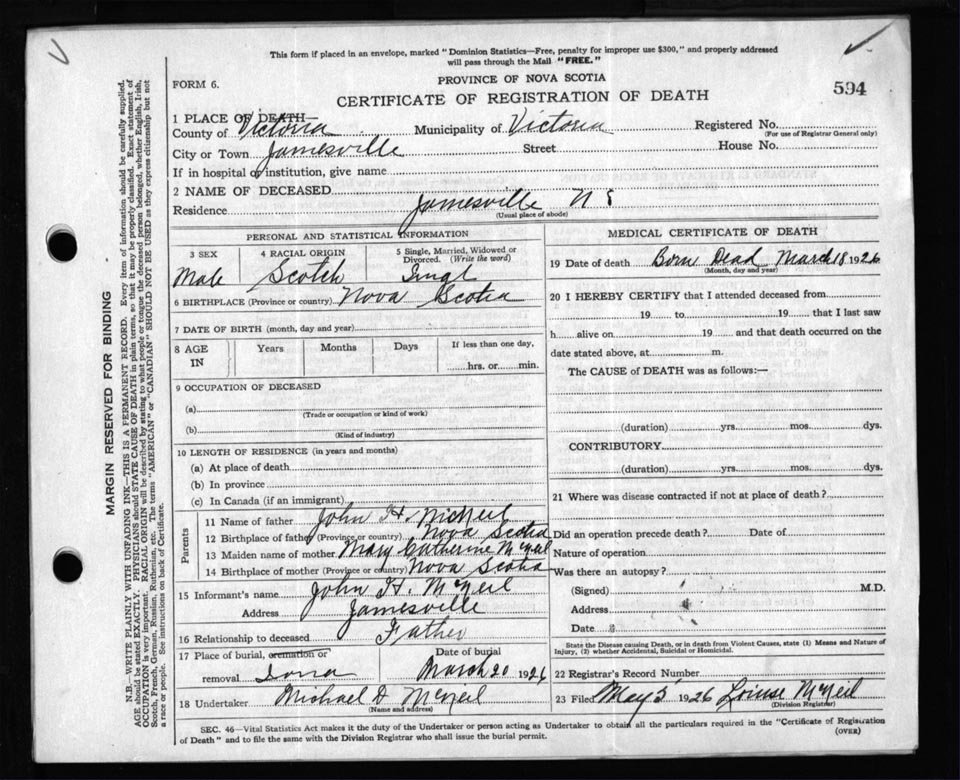 This form if placed in an envelope, marked "Dominion Statistics—Free, penalty for improper use $300," and properly addressed
will pass through the Mail "FREE."
FORM 6.
PROVINCE OF NOVA SCOTIA
594
CERTIFICATE OF REGISTRATION OF DEATH
1 PLACE OF DEATH—
County of Victoria Municipality of Victoria Registered No.
(For use of Registrar General only)
City or Town Jamesville Street House No.
If in hospital or institution, give name
2 NAME OF DECEASED
Residence Jamesville N S
(Usual place of abode)
PERSONAL AND STATISTICAL INFORMATION
3 SEX 4 RACIAL ORIGIN 5 Single, Married, Widowed or
Divorced. (Write the word)
Male Scotch Singl
6 BIRTHPLACE (Province or country) Nova Scotia
7 DATE OF BIRTH (month, day and year)
8 AGE IN Years Months Days If less than one day,
hrs. or min.
9 OCCUPATION OF DECEASED
(a)
(Trade or occupation or kind of work)
(b)
(Kind of industry)
10 LENGTH OF RESIDENCE (in years and months)
(a) At place of death
(b) In province
(c) In Canada (if an immigrant)
Parents
11 Name of father John H. McNeil
12 Birthplace of father (Province or country) Nova Scotia
13 Maiden name of mother Mary Catherine McNeil
14 Birthplace of mother (Province or country) Nova Scotia
15 Informant's name John H. McNeil
Address Jamesville
16 Relationship to deceased Father
17 Place of burial, cremation or Date of burial
removal Iona March 20 1926
18 Undertaker Michael D McNeil
(Name and address)
MEDICAL CERTIFICATE OF DEATH
19 Date of death Born Dead March 18 1926
(Month, day and year)
20 I HEREBY CERTIFY that I attended deceased from
19 to 19 that I last saw
h alive on 19 and that death occurred on the
date stated above, at m.
The CAUSE of DEATH was as follows:—
(duration) yrs. mos. dys.
CONTRIBUTORY
(duration) yrs. mos. dys.
21 Where was disease contracted if not at place of death?
Did an operation precede death? Date of
Nature of operation
Was there an autopsy?
(Signed) M.D.
Address
Date
State the Disease causing Death, or in death from Violent Causes, state (1) Means and Nature of
Injury, (2) whether Accidental, Suicidal or Homicidal.
22 Registrar's Record Number
23 Filed May 3 1926 Louise McNeil
(Division Registrar)
SEC. 46—Vital Statistics Act makes it the duty of the Undertaker or person acting as Undertaker to obtain all the particulars required in the "Certificate of Registration
of Death" and to file the same with the Division Registrar who shall issue the burial permit.
(OVER)
MARGIN RESERVED FOR BINDING
N.B.—WRITE PLAINLY WITH UNFADING INK—THIS IS A PERMANENT RECORD. Every item of information should be carefully supplied.
AGE should be stated EXACTLY. PHYSICIANS should STATE CAUSE OF DEATH in plain terms, so that it may be properly classified. Exact statement of
OCCUPATION is very important. RACIAL ORIGIN will be described by stating to what people or tongue the deceased person belonged, whether English, Irish,
Scotch, French, German, Russian, Ruthenian, etc. The terms "AMERICAN" or "CANADIAN" SHOULD NOT BE USED as they express citizenship but not
a race or people. See instructions on back of Certificate.